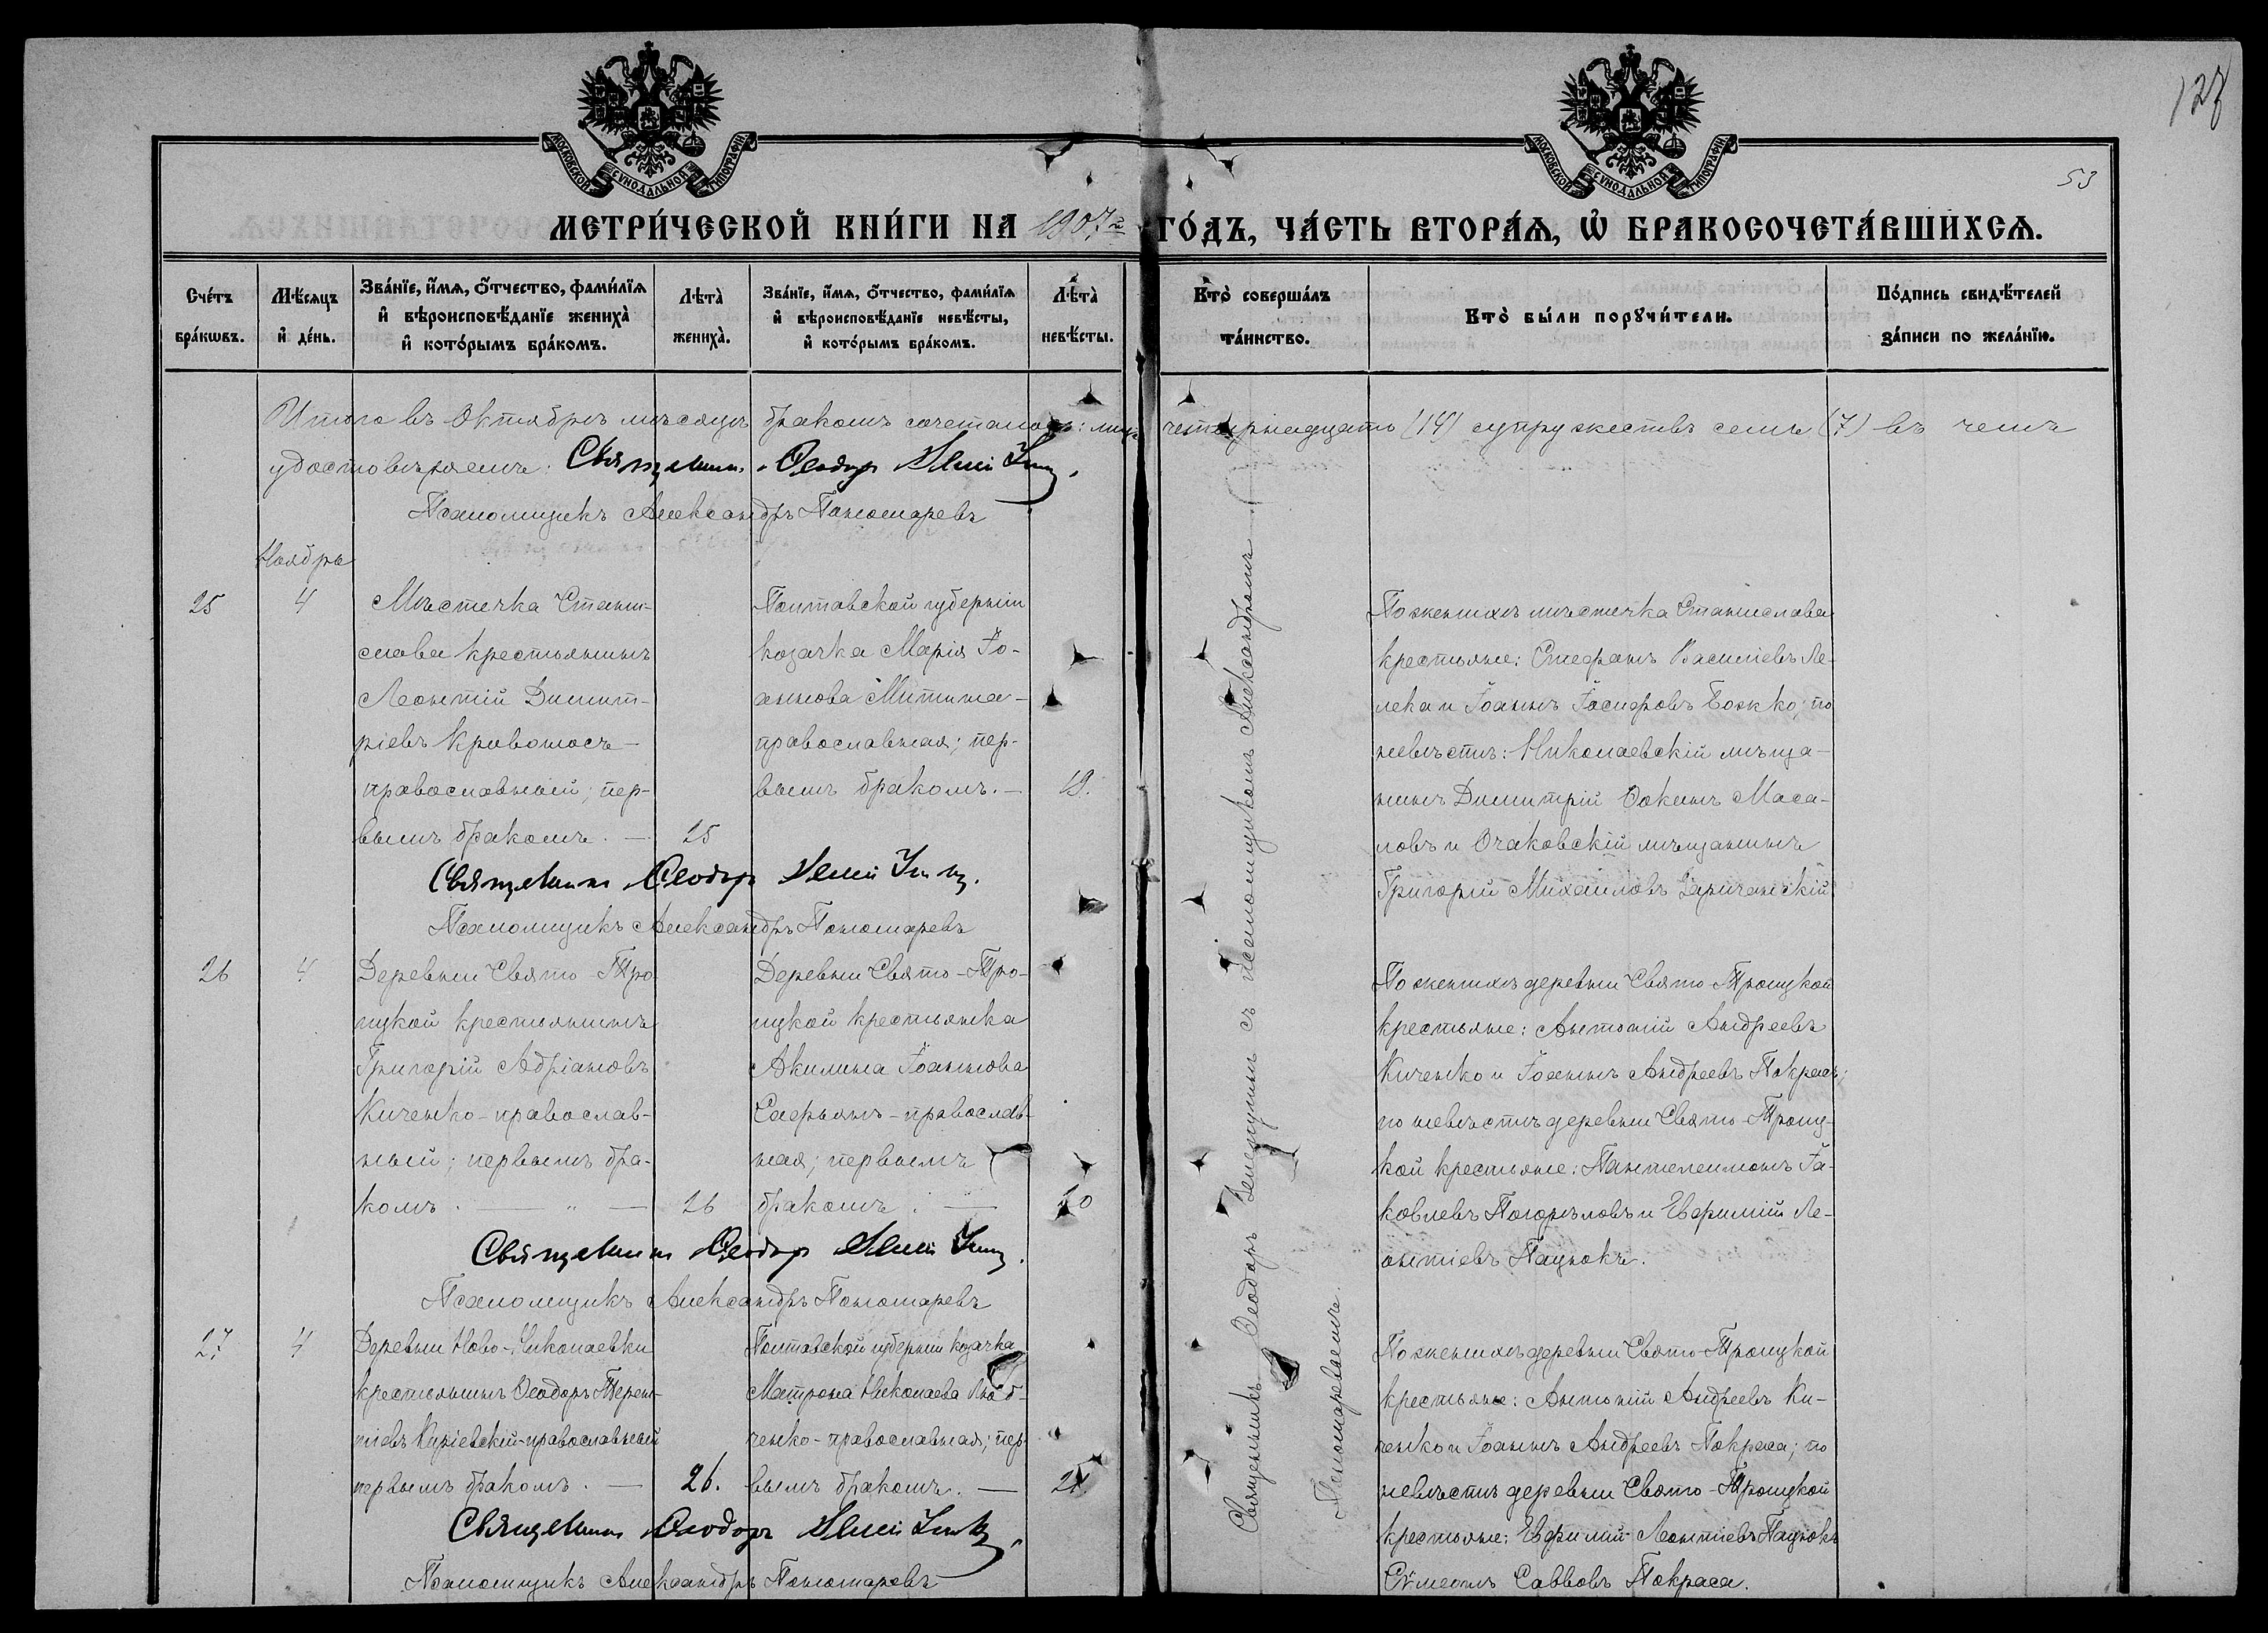 127
53
МОСКОВСКОЙ СѴНОДАЛЬНОЙ ТИПОГРАФІИ
МОСКОВСКОЙ СѴНОДАЛЬНОЙ ТИПОГРАФІИ
МЕТРИ́ЧЕСКОЙ КНИ́ГИ НА 1907й ГО́ДЪ, ЧА́СТЬ ВТОРА́Я, Ѡ БРАКОСОЧЕТА́ВШИХСЯ.
Сче́тъ бра́кѡвъ.
Мѣ́сяцъ и де́нь.
Зва́нїе, и́мя, ѻ́тчество, фами́лїя и вѣроисповѣ́данїе жениха̀ и кото́рымъ бра́комъ.
Лѣта̀ жениха̀.
Зва́нїе, и́мя, ѻ́тчество, фами́лїя и вѣроисповѣ́данїе невѣ́сты, и кото́рымъ бра́комъ.
Лѣта̀ невѣ́сты.
Кто̀ соверша́лъ та́инство.
Кто̀ бы́ли порꙋчи́тели.
По́дпись свидѣ́телей за́писи по жела́нїю.
Итого въ Октябрѣ мѣсяцѣ бракомъ сочеталось: лицъ четырнадцать (14) супружествъ семь (7) въ чемъ
удостовѣряемъ: Священник Ѳеодор
Псаломщикъ Александръ Пономаревъ
Ноябрь
25
4
Мѣстечка Стани-
слава крестьянинъ
Леонтій Димит-
ріевъ Кривоносъ –
православный; пер-
вымъ бракомъ. —
25
Полтавской губерніи
козачка Марія Іо-
аннова Митина –
православная; пер-
вымъ бракомъ. —
19.
По женихѣ мѣстечка Станислава
крестьяне: Стефанъ Василіевъ Ле-
лека и Іоаннъ Іосифовъ Божко; по
невѣстѣ: Николаевскій мѣща-
нинъ Димитрій Ѳокинъ Маса-
ловъ и Очаковскій мѣщанинъ
Григорій Михаиловъ Заричанскій
Священник Ѳеодор
Псаломщикъ Александръ Пономаревъ
26
4
Деревни Свято-Тро-
ицкой крестьянинъ
Григорій Адріановъ
Киченко – православ-
ный; первымъ бра-
комъ. — „ —
26
Деревни Свято-Тро-
ицкой крестьянка
Акилина Іоаннова
Сафьянъ – православ-
ная; первымъ
бракомъ. —
20
По женихѣ деревни Свято-Троицкой
крестьяне: Антоній Андреевъ
Киченко и Іоаннъ Андреевъ Покраса;
по невѣстѣ деревни Свято-Троиц-
кой крестьяне: Пантелеимонъ Іа-
ковлевъ Погорѣловъ и Евфимій Ле-
онтіевъ Пацюкъ.
Священник Ѳеодор
Псаломщикъ Александръ Пономаревъ
27
4
Деревни Ново-Николаевки
крестьянинъ Ѳеодоръ Терен-
тіевъ Киріевскій – православный
первымъ бракомъ. —
26.
Полтавской губерніи козачка
Матрона Николаева
ченко – православная; пер-
вымъ бракомъ. —
21
По женихѣ деревни Свято-Троицкой
крестьяне: Антоній Андреевъ Ки-
ченко и Іоаннъ Андреевъ Покраса; по
невѣстѣ деревни Свято-Троицкой
крестьяне: Евфимій Леонтіевъ Пацюкъ
Сѵмеонъ Саввовъ Покраса.
Священник Ѳеодор
Псаломщикъ Александръ Пономаревъ
Священникъ Ѳеодоръ съ псаломщикомъ Александромъ
Пономаревымъ.